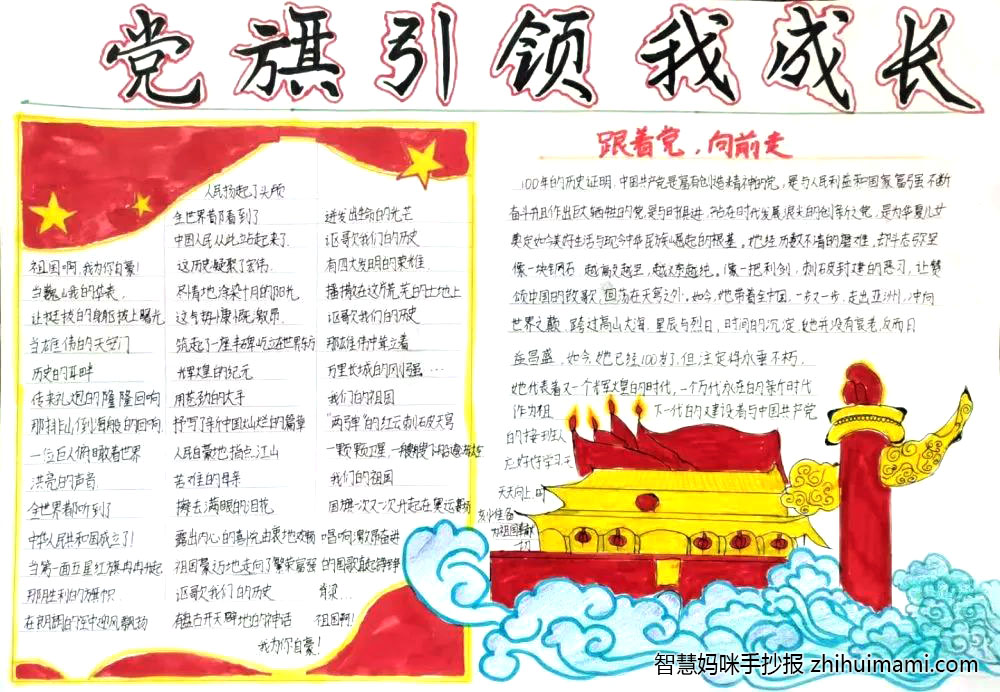 党旗引领我成长
祖国啊,我为你自豪!
让挺拔的身躯披上曙光
当雄伟的天安门
历史的耳畔
传来礼炮的隆隆回响
那排山倒海般的回响
一位巨人俯瞰着世界
洪亮的声音
全世界都听到了
中华人民共和国成立了!
当第一面五星红旗冉冉升起
那胜利的旗帜
在朗朗的空中迎风飘扬
人民扬起了头颅
全世界都看到了
中国人民从此站起来了.
这历史凝聚了宏伟.
尽情地渲染十月的阳光
这气势慷慨激昂.
筑起了一座丰碑屹立在世界东方
辉煌的纪元
用苍劲的大手
抒写了新中国灿烂的篇章
人民自豪地指点江山
苦难的母亲
擦去满眼的泪花
露出内心的喜悦由衷地欢畅
祖国豪迈地走向了繁荣富强
讴歌我们的历史
有盘古开天辟地的神话
迸发出生命的光芒
讴歌我们的历史
有四大发明的荣耀.
播撒在这片荒芜的土地上
讴歌我们的历史
那雄伟中矗立着
万里长城的刚强…
我们的祖国
"两弹"的红云刺破天穹
我们的祖国
国旗一次又一次升起在奥运赛场
祖国啊!
我为你自豪!
跟着党,向前走
100年的历史证明,中国共产党是富有创造精神的党,是与人民利益和国家富强不断
奋斗并且作出巨大牺牲的党.是与时俱进,站在时代发展浪尖的创新之党,是为华夏儿女
奠定如今美好生活与现今中华民族崛起的根基。她经历数不清的磨难,却斗志弥坚
像一块钢石 越敲越坚,越炼越纯。像一把利剑,刺破封建的恶习,让赞
颂中国的欢歌,回荡在天穹之外。如今,她带着全中国,一步又一步,走出亚洲,冲向
世界之巅.跨过高山大海,星辰与烈日,时间的沉淀,她并没有衰老,反而日
益昌盛,如今,她已经100岁了,但注定将永垂不朽,
她代表着又一个辉煌的时代,一个万代永存在的新时代
作为祖 下一代的建设者与中国共产党
的接班人
应好好学习天
天天向上,时
刻准备
为祖国奉献
一切
智慧妈咪手抄报 zhihuimami.com